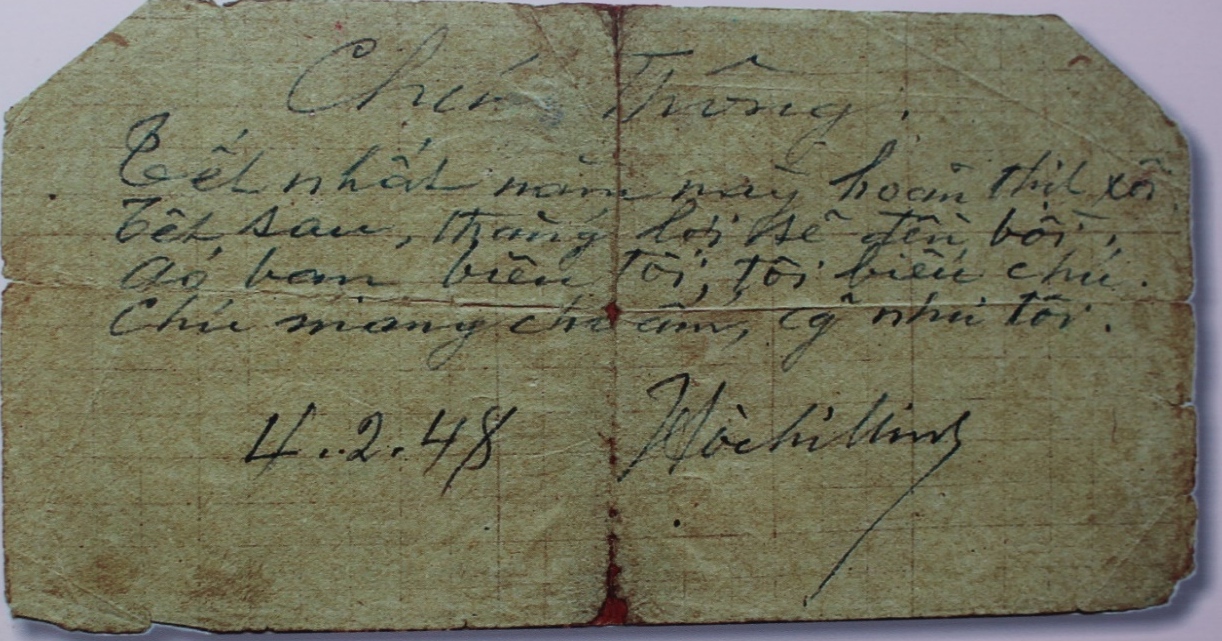 Chú Thông.
Tết nhất năm nay hoãn thịt xôi
Tết sau, thắng lợi sẽ đền bồi,
áo bạn biếu tôi, tôi biếu chú.
Chú mang cho ấm, cg như tôi.
4.2.48 Hồ chí Minh